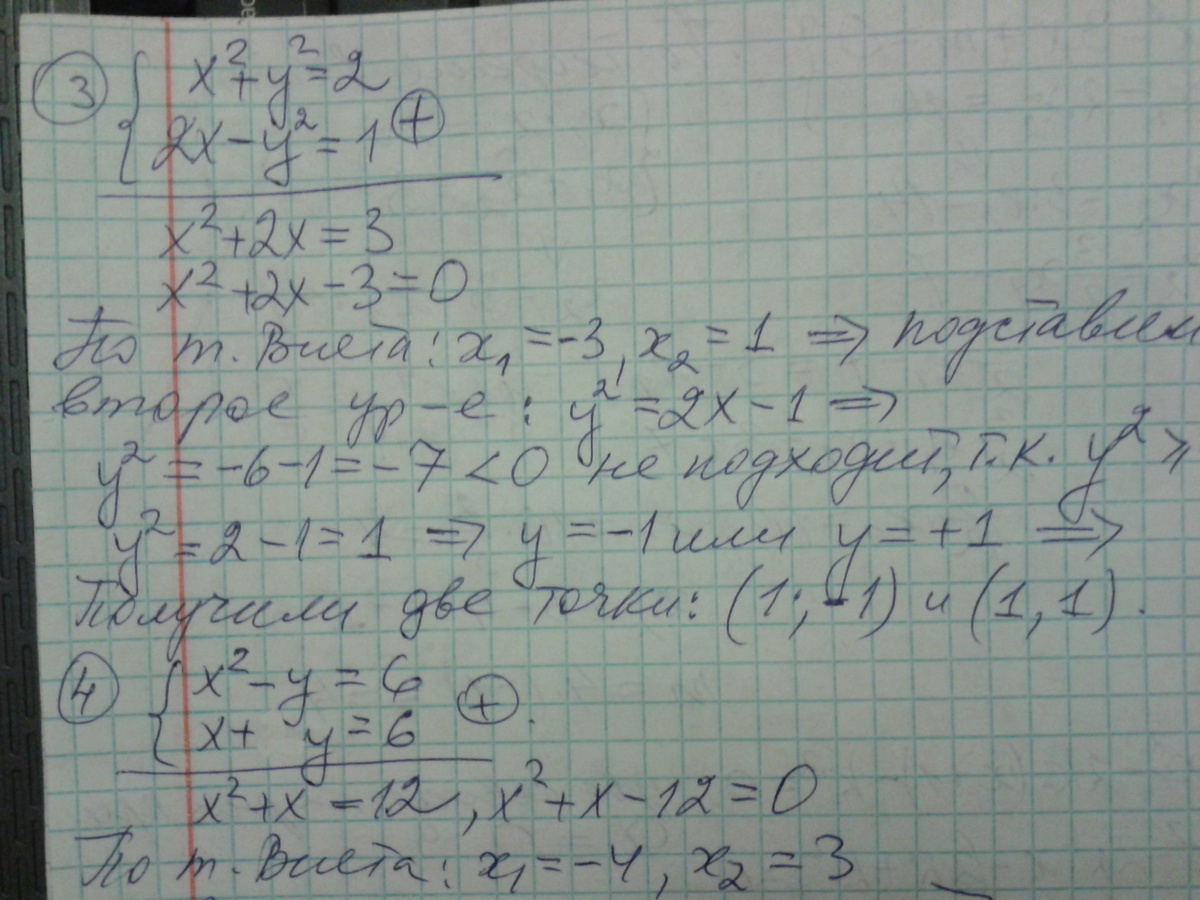 ③ { x²+y²=2
2x-y²=1 ⊕
x²+2x=3
x²+2x-3=0
По т. Виета: x₁=-3, x₂=1 ⇒ подставим
второе ур-е: y²=2x-1 ⇒
y²=-6-1=-7<0 не подходит, т.к. y²⩾
y²=2-1=1 ⇒ y=-1 или y=+1 ⇒
Получили две точки: (1;-1) и (1,1).
④ { x²-y=6
x+ y=6 ⊕.
x²+x=12, x²+x-12=0
По т. Виета: x₁=-4, x₂=3